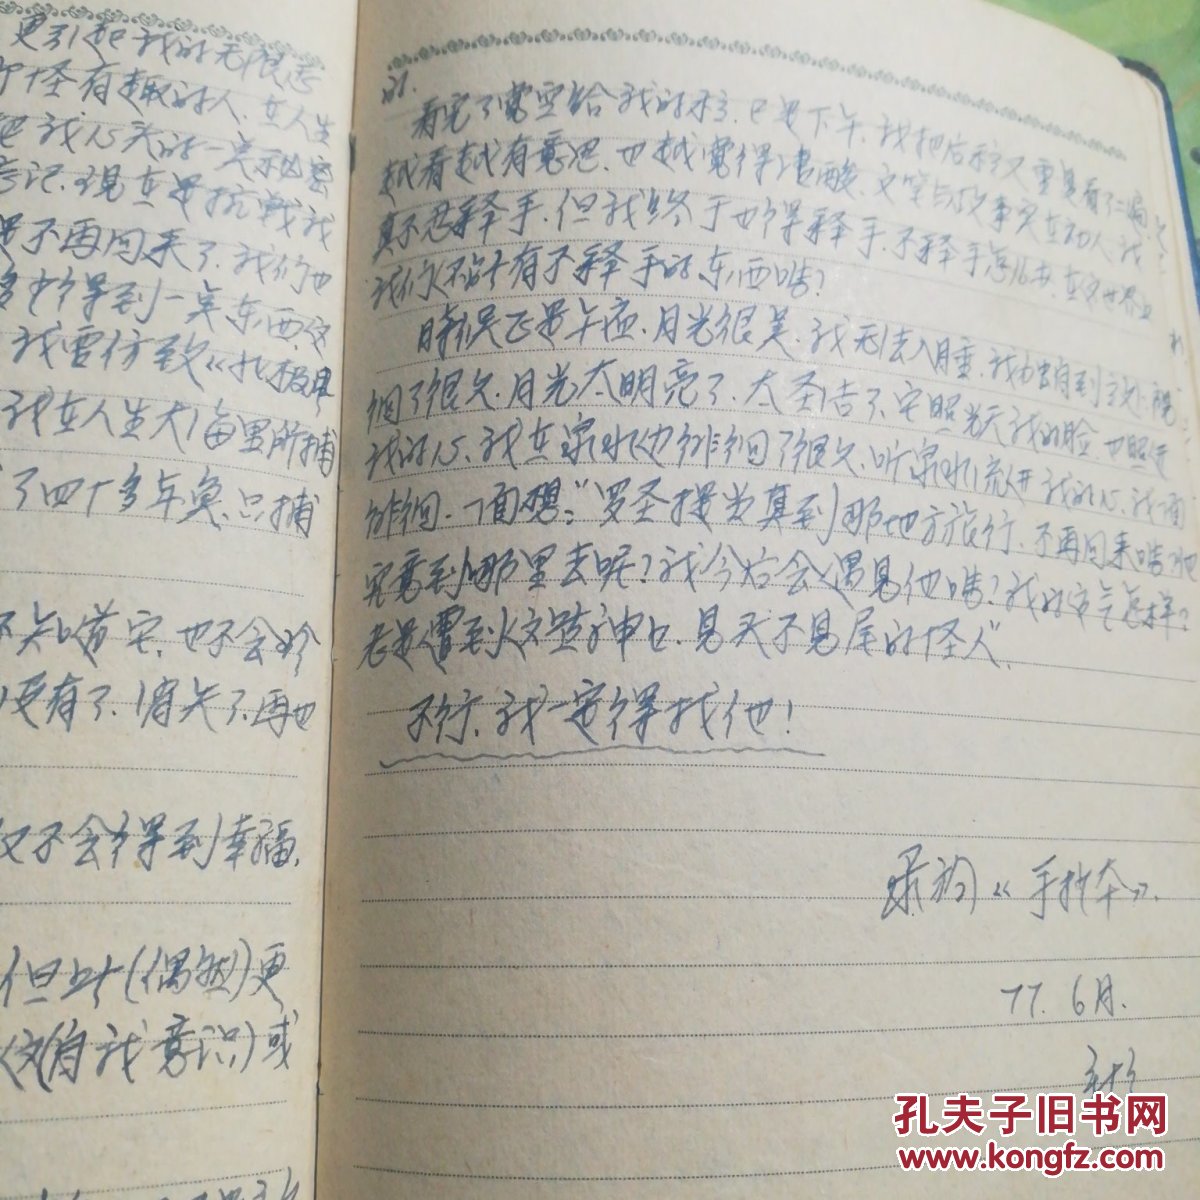 更引起我的无限
怪有趣的人、在人生
我心头的一
忘记、现在是抗战我
是不再回来了、我们也
多少得到一
我曾仿效《北极
我在人生大海里所捕
了四十多年鱼、只捕
不知道它、也不会珍
更有了、消失了、再也
又不会得到幸福、
但此(偶然)更
(自我意识)或
的.
看完了觉空给我的稿、已是下午、我把后稿又重复看了二遍、
越看越有意思、也越觉得凄酸、文笔与故事实在动人、我
真不忍释手、但我终于也得释手、不释手怎么办、在这世界上
我们不能有不释手的东西吗?
时候已是午夜、月光很美、我无法入睡、我独自到
徊了很久、月光太明亮了、太圣洁了、它照光了我的脸、也照进
我的心、我在泉水边徘徊了很久、听泉水流进我的心、我一面
徘徊、一面想:“罗圣提当真到那地方旅行、不再回来吗?他
究竟到哪里去呢?我今后会遇见他吗?我的运气怎样?
老是遭到这些神出、见头不见尾的怪人”、
不行、我一定得找他!
录初《手抄本》.
77. 6月.
孔夫子旧书网
www.kongfz.com